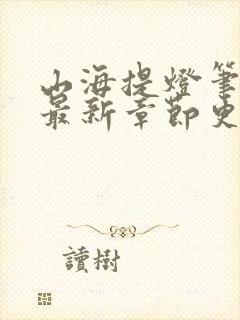 山海提燈筆
最新章節史
讀樹